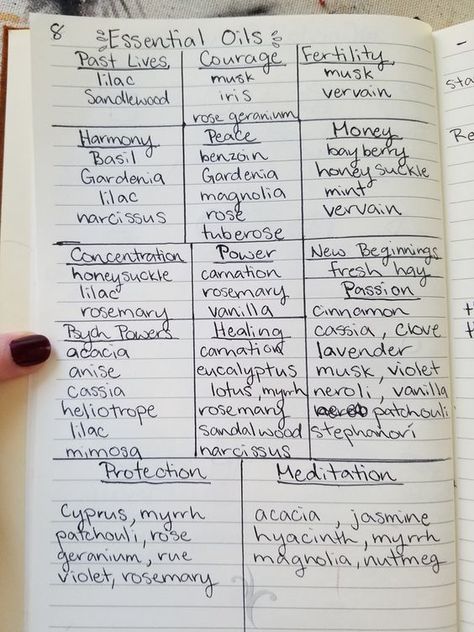 8
Essential Oils
Past Lives
lilac
Sandlewood
Courage
musk
iris
rose geranium
Fertility
musk
vervain
Harmony
Basil
Gardenia
lilac
narcissus
Peace
benzoin
Gardenia
magnolia
rose
tuberose
Money
bayberry
honeysuckle
mint
vervain
Concentration
honeysuckle
lilac
rosemary
Power
carnation
rosemary
vanilla
New Beginnings
fresh hay
Passion
cinnamon
cassia, clove
lavender
musk, violet
neroli, vanilla
patchouli
stephanori
Psych Powers
acacia
anise
Cassia
heliotrope
lilac
mimosa
Healing
carnation
eucalyptus
lotus, myrrh
rosemary
sandalwood
narcissus
Protection
Cyprus, myrrh
patchouli, rose
geranium, rue
violet, rosemary
Meditation
acacia, jasmine
hyacinth, myrrh
magnolia, nutmeg
sta
Re